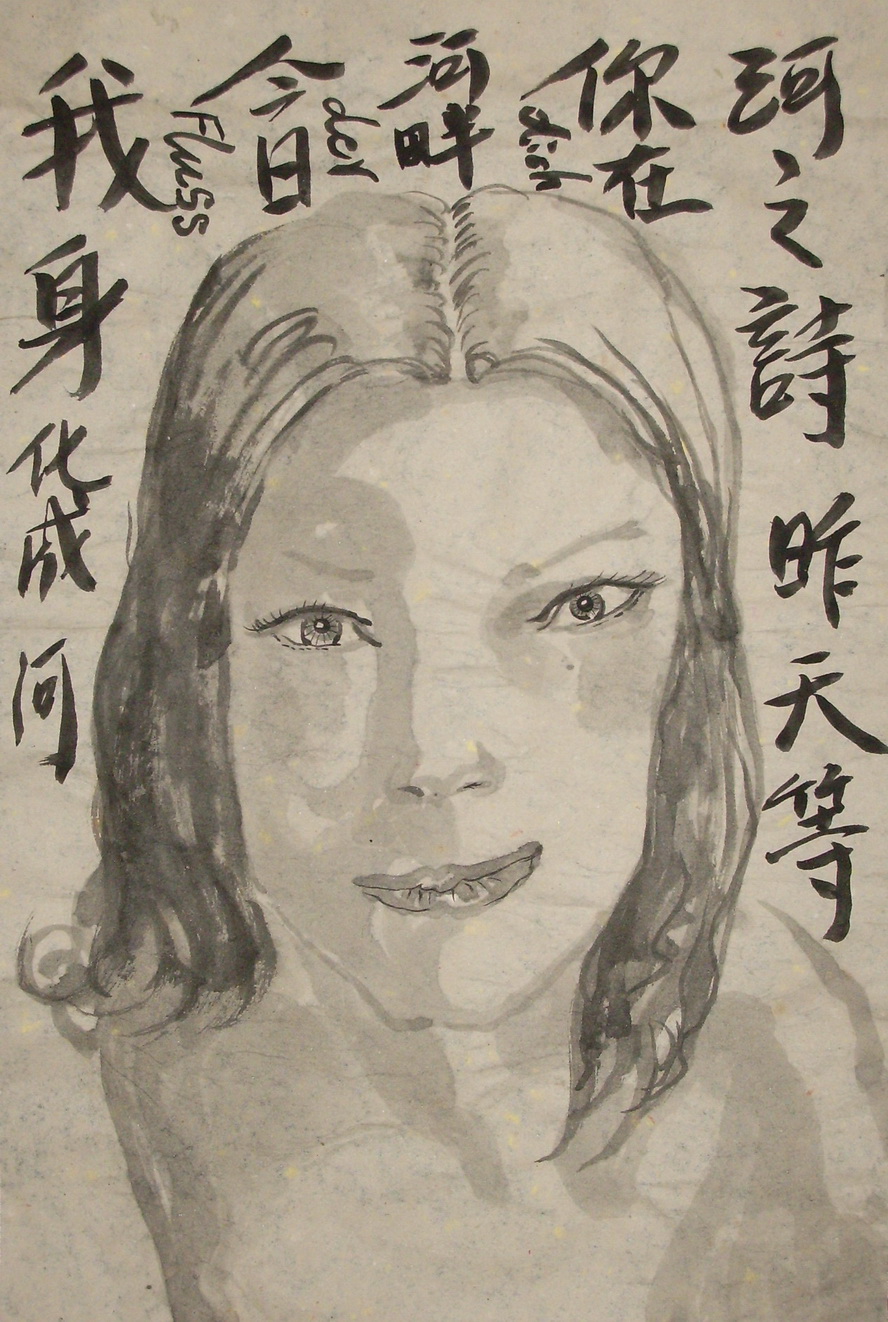 河之詩 昨天等
你在
dich
河畔
der
今日
Fluss
我身化成河